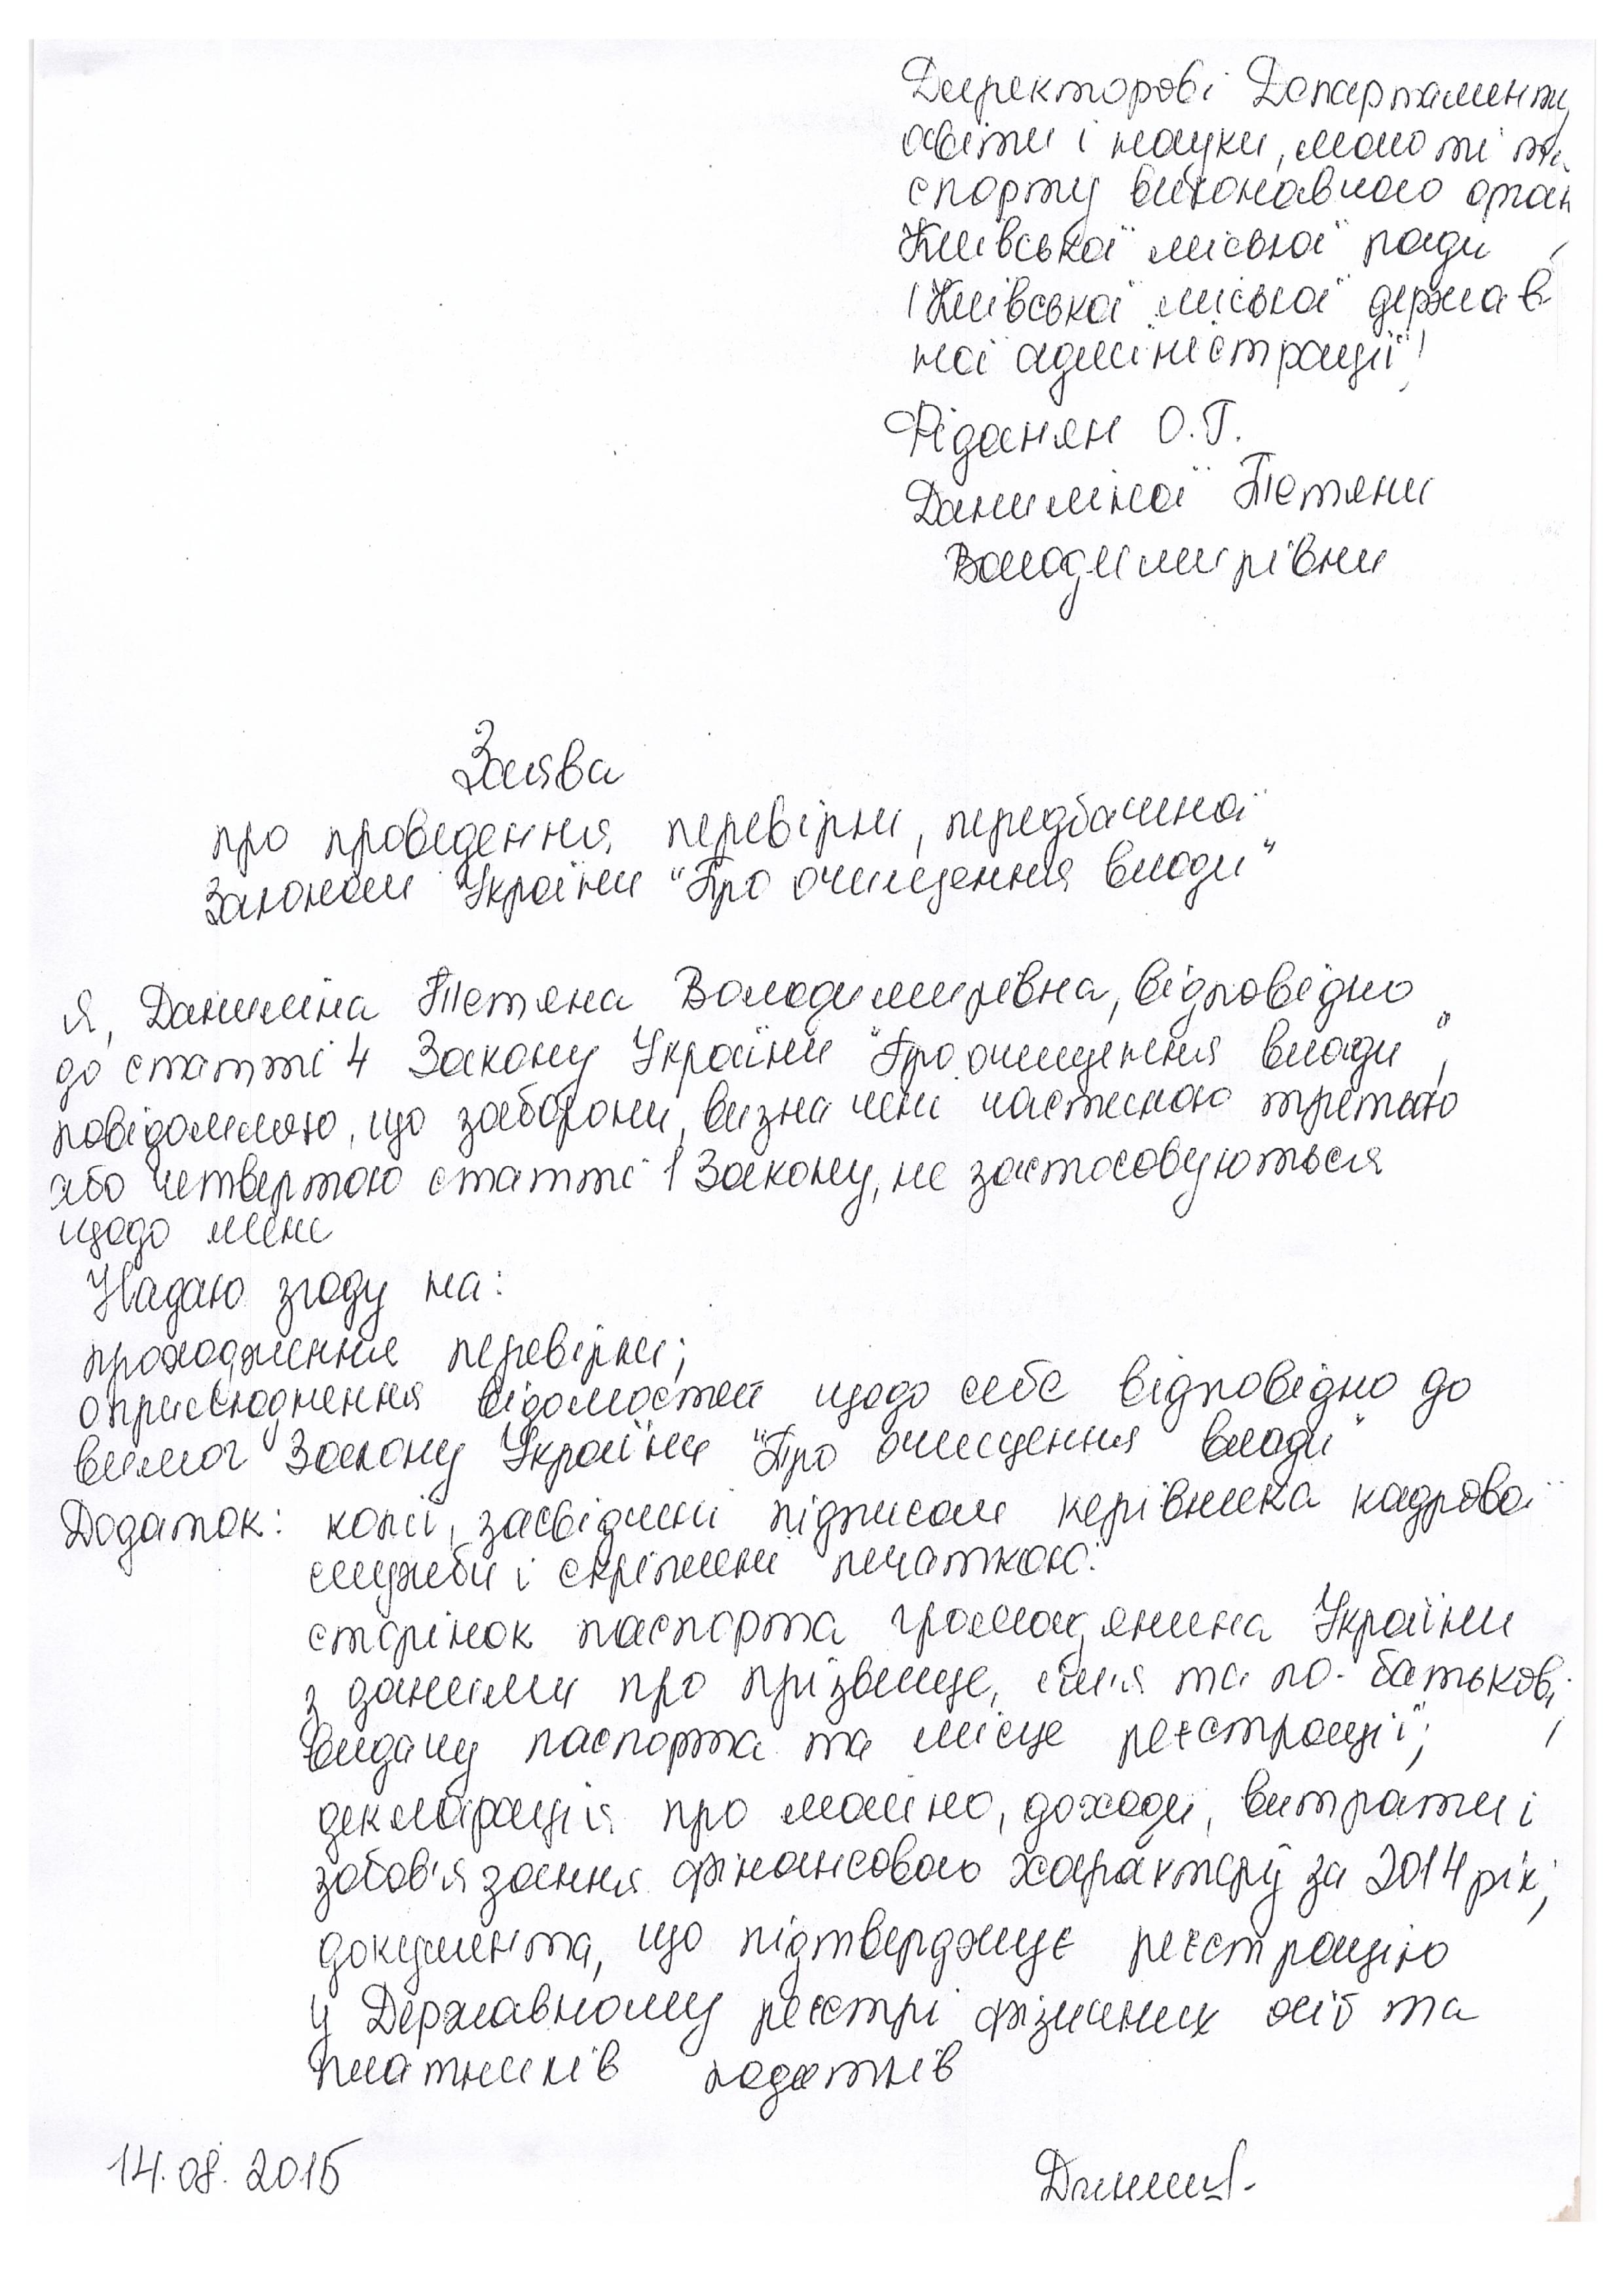 Директорові Департаменту
освіти і науки, молоті та
спорту виконавчого орган
Київської міської ради
(Київської міської держав
ної адміністрації)
Фіданян О.Г.
Даниліної Тетяни
Володимирівни
Заява
про проведення перевірки, передбаченої
Законом України "Про очищення влади"
Я, Даниліна Тетяна Володимирівна, відповідно
до статті 4 Закону України "Про очищення влади",
повідомляю, що заборони, визначені частиною третьою
або четвертою статті 1 Закону, не застосовуються
щодо мене
Надаю згоду на:
проходження перевірки;
оприлюднення відомостей щодо себе відповідно до
вимог Закону України "Про очищення влади"
Додаток: копії, засвідчені підписом керівника кадрової
служби і скріплені печаткою:
сторінок паспорта громадянина України
з даними про прізвище, ім'я та по-батькові,
видачу паспорта та місце реєстрації;
декларація про майно, доходи, витрати і
зобов'язання фінансового характеру за 2014 рік;
документа, що підтверджує реєстрацію
у Державному реєстрі фізичних осіб та
платників податків
14.08.2015